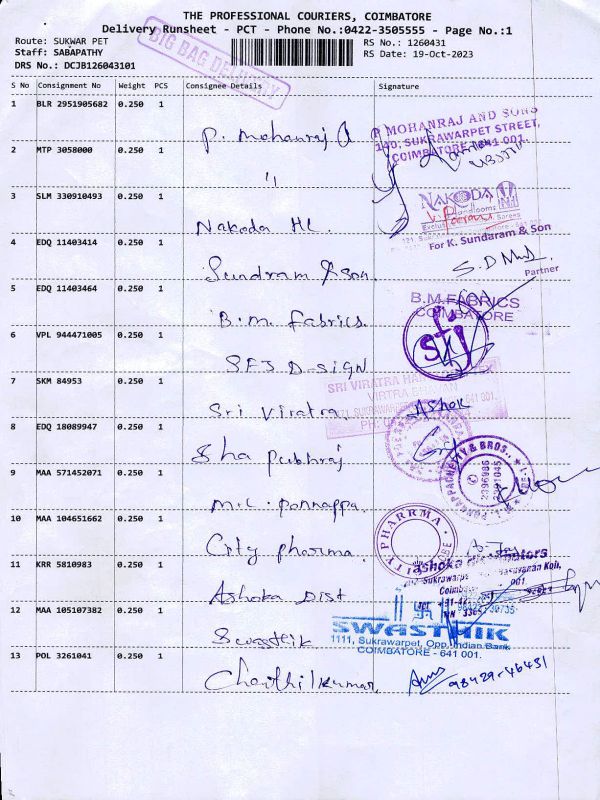 THE PROFESSIONAL COURIERS, COIMBATORE
Delivery Runsheet - PCT - Phone No.:0422-3505555 - Page No.:1
Route: SUKWAR PET
RS No.: 1260431
Staff: SABAPATHY
RS Date: 19-Oct-2023
DRS No.: DCJB126043101
BIG BAG DELIVERY
S No Consignment No Weight PCS Consignee Details Signature
1 BLR 2951905682 0.250 1 P. Mohanraj
P MOHANRAJ AND SONS
140, SUKRAWARPET STREET,
COIMBATORE - 641 001.
2 MTP 3058000 0.250 1 "
3 SLM 330910493 0.250 1 Nakoda HL.
NAKODA
Handlooms
4 EDQ 11403414 0.250 1 Sundram & Son.
For K. Sundaram & Son
Partner
5 EDQ 11403464 0.250 1 B.M. Fabrics.
B.M. FABRICS
COIMBATORE
6 VPL 944471005 0.250 1 SFJ D-SIGN
7 SKM 84953 0.250 1 Sri Viratra.
SRI VIRATRA
Ashok
8 EDQ 18089947 0.250 1 Sha Pukhraj
9 MAA 571452071 0.250 1 M.C. Ponnappa.
& BROS.
2396986
2391045
10 MAA 104651662 0.250 1 City Pharma.
CITY PHARRMA
11 KRR 5810983 0.250 1 Ashoka Dist
12 MAA 105107382 0.250 1 Swasthik
SWASTHIK
1111, Sukrawarpet, Opp. Indian Bank
COIMBATORE - 641 001.
13 POL 3261041 0.250 1 Chaithilkumar.
98429-46431